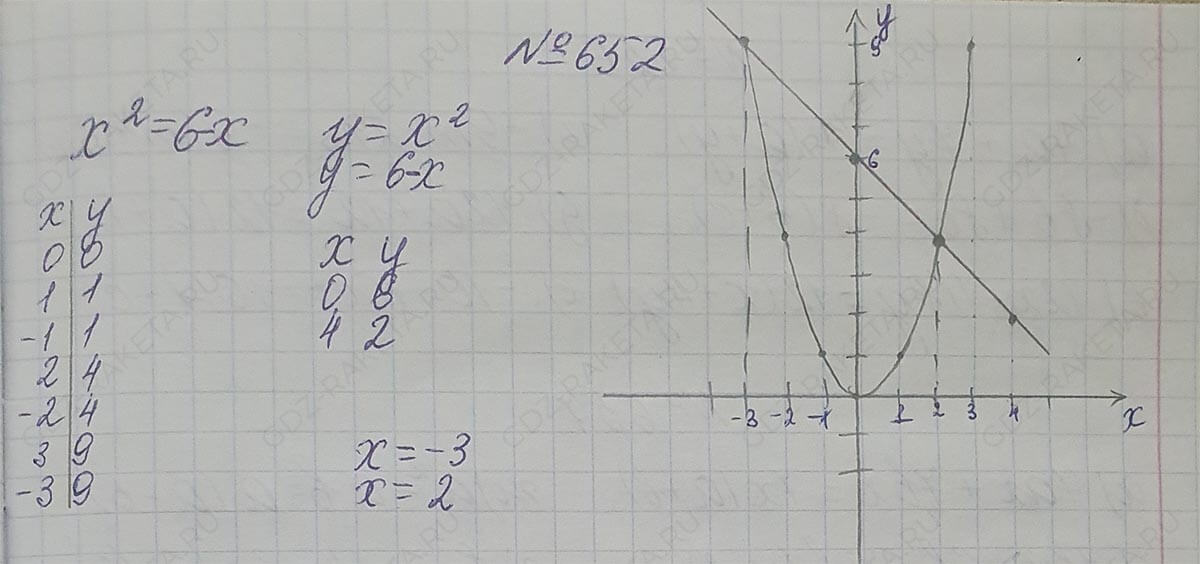 №652
x²=6-x
y=x²
y=6-x
x y
0 0
1 1
-1 1
2 4
-2 4
3 9
-3 9
x y
0 6
4 2
x=-3
x=2
y
9
6
-3 -2 -1 1 2 3 4
x
GDZ-RAKETA.RU